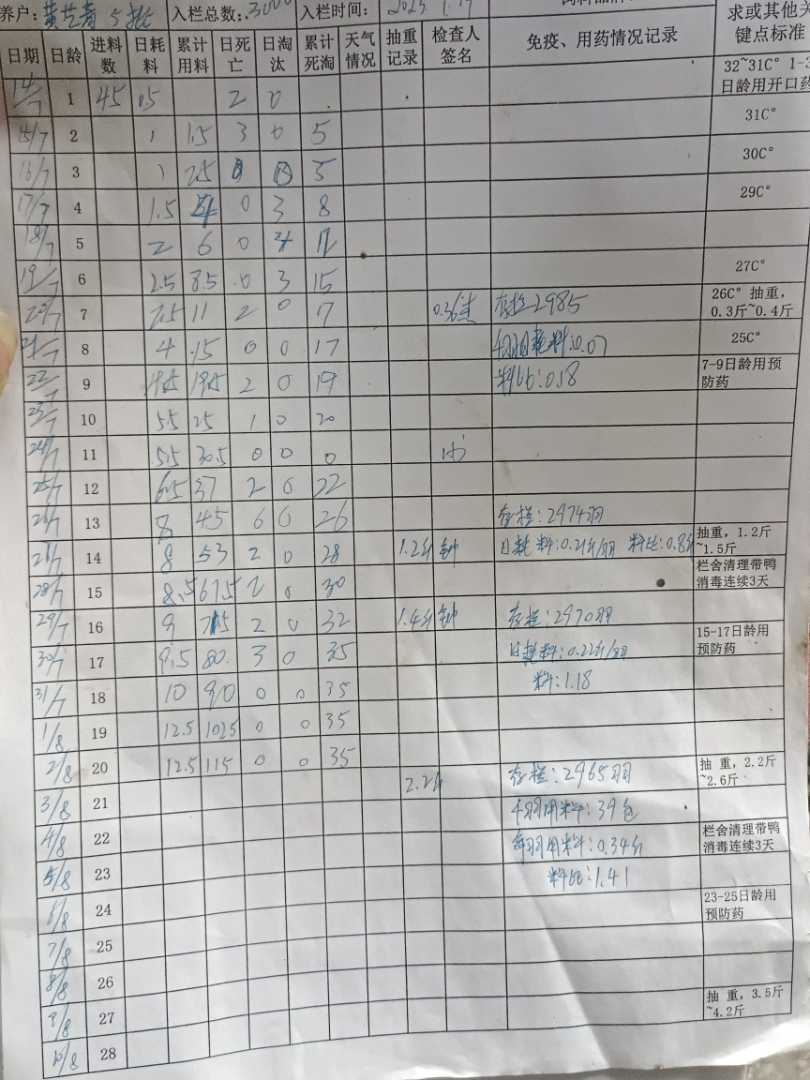 养户: 5批 入栏总数: 3000 入栏时间: 2023
日期 日龄 进料数 日耗料 累计用料 日死亡 日淘汰 累计死淘 天气情况 抽重记录 检查人签名 免疫、用药情况记录 求或其他关键点标准
14/7 1 45 0.5 2 0 32~31C° 1-3日龄用开口药
15/7 2 1 1.5 3 0 5 31C°
16/7 3 1 2.5 0 0 5 30C°
17/7 4 1.5 4 0 3 8 29C°
18/7 5 2 6 0 4 12
19/7 6 2.5 8.5 0 3 15 27C°
20/7 7 2.5 11 2 0 17 0.36 存栏2985 26C° 抽重,0.3斤~0.4斤
21/7 8 4 15 0 0 17 千羽耗料:0.07 25C°
22/7 9 19.5 2 0 19 料比:0.18 7-9日龄用预防药
23/7 10 5.5 25 1 0 20
24/7 11 5.5 30.5 0 0 0
25/7 12 6.5 37 2 0 22
26/7 13 8 45 6 0 26 存栏:2974羽
14 8 53 2 0 28 1.2斤 钟 日耗料:0.21斤/羽 料比:0.8 抽重,1.2斤~1.5斤
28/7 15 8.5 2 0 30 栏舍清理带鸭消毒连续3天
29/7 16 9 2 0 32 1.4斤 钟 存栏:2970羽
30/7 17 9.5 80 3 0 35 日耗料:0.22斤/羽 15-17日龄用预防药
31/7 18 10 90 0 0 35 料:1.18
1/8 19 12.5 102.5 0 0 35
2/8 20 12.5 115 0 0 35
3/8 21 2.2斤 存栏:2965羽 抽 重,2.2斤~2.6斤
千羽用料:39包
4/8 22 每羽用料:0.34斤 栏舍清理带鸭消毒连续3天
5/8 23 料比:1.41
6/8 24 23-25日龄用预防药
7/8 25
8/8 26
9/8 27 抽 重,3.5斤~4.2斤
10/8 28